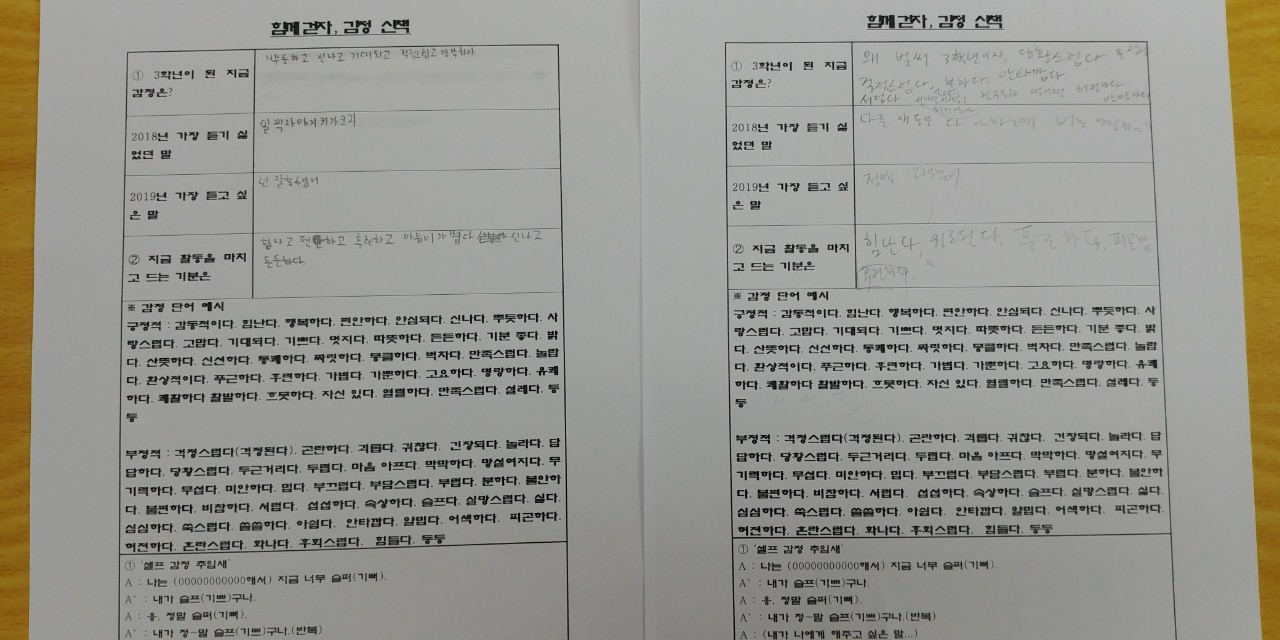 함께 걷자, 감정 산책
① 3학년이 된 지금
감정은?
신나고 기대되고 걱정스럽고
2018년 가장 듣기 싫
었던 말
2019년 가장 듣고 싶
은 말
넌 잘할수있어
② 지금 활동을 마치
고 드는 기분은
힘나고 편안하고 후련하고 마음이 가볍다 신나고
든든하다.
※ 감정 단어 예시
긍정적 : 감동적이다. 힘난다. 행복하다. 편안하다. 안심되다. 신나다. 뿌듯하다. 사
랑스럽다. 고맙다. 기대되다. 기쁘다. 멋지다. 따뜻하다. 든든하다. 기분 좋다. 밝
다. 산뜻하다. 신선하다. 통쾌하다. 짜릿하다. 뭉클하다. 벅차다. 만족스럽다. 놀랍
다. 환상적이다. 푸근하다. 후련하다. 가볍다. 가뿐하다. 고요하다. 명랑하다. 유쾌
하다. 쾌활하다 활발하다. 흐뭇하다. 자신 있다. 열렬하다. 만족스럽다. 설레다. 등
등
부정적 : 걱정스럽다(걱정된다). 곤란하다. 괴롭다. 귀찮다. 긴장되다. 놀라다. 답
답하다. 당황스럽다. 두근거리다. 두렵다. 마음 아프다. 막막하다. 망설여지다. 무
기력하다. 무섭다. 미안하다. 밉다. 부끄럽다. 부담스럽다. 부럽다. 분하다. 불안하
다. 불편하다. 비참하다. 서럽다. 섭섭하다. 속상하다. 슬프다. 실망스럽다. 싫다.
심심하다. 쑥스럽다. 쓸쓸하다. 아쉽다. 안타깝다. 얄밉다. 어색하다. 피곤하다.
허전하다. 혼란스럽다. 화나다. 후회스럽다. 힘들다. 등등
① '셀프 감정 추임새'
A : 나는 (00000000000해서) 지금 너무 슬퍼(기뻐).
A` : 내가 슬프(기쁘)구나.
A : 응, 정말 슬퍼(기뻐).
A` : 내가 정~말 슬프(기쁘)구나.(반복)
함께 걷자, 감정 산책
① 3학년이 된 지금
감정은?
왜 벌써 3학년이지, 당황스럽다
걱정스럽다, 분하다, 안타깝다.
서럽다 친구들과 떨어져서 허전하다
2018년 가장 듣기 싫
었던 말
다른 애들은 다 너는
2019년 가장 듣고 싶
은 말
정말
② 지금 활동을 마치
고 드는 기분은
힘난다, 위로된다, 푸근하다, 피곤함
후련하다.
※ 감정 단어 예시
긍정적 : 감동적이다. 힘난다. 행복하다. 편안하다. 안심되다. 신나다. 뿌듯하다. 사
랑스럽다. 고맙다. 기대되다. 기쁘다. 멋지다. 따뜻하다. 든든하다. 기분 좋다. 밝
다. 산뜻하다. 신선하다. 통쾌하다. 짜릿하다. 뭉클하다. 벅차다. 만족스럽다. 놀랍
다. 환상적이다. 푸근하다. 후련하다. 가볍다. 가뿐하다. 고요하다. 명랑하다. 유쾌
하다. 쾌활하다 활발하다. 흐뭇하다. 자신 있다. 열렬하다. 만족스럽다. 설레다. 등
등
부정적 : 걱정스럽다(걱정된다). 곤란하다. 괴롭다. 귀찮다. 긴장되다. 놀라다. 답
답하다. 당황스럽다. 두근거리다. 두렵다. 마음 아프다. 막막하다. 망설여지다. 무
기력하다. 무섭다. 미안하다. 밉다. 부끄럽다. 부담스럽다. 부럽다. 분하다. 불안하
다. 불편하다. 비참하다. 서럽다. 섭섭하다. 속상하다. 슬프다. 실망스럽다. 싫다.
심심하다. 쑥스럽다. 쓸쓸하다. 아쉽다. 안타깝다. 얄밉다. 어색하다. 피곤하다.
허전하다. 혼란스럽다. 화나다. 후회스럽다. 힘들다. 등등
① '셀프 감정 추임새'
A : 나는 (00000000000해서) 지금 너무 슬퍼(기뻐).
A` : 내가 슬프(기쁘)구나.
A : 응, 정말 슬퍼(기뻐).
A` : 내가 정~말 슬프(기쁘)구나.(반복)
A : (내가 나에게 해주고 싶은 말...)